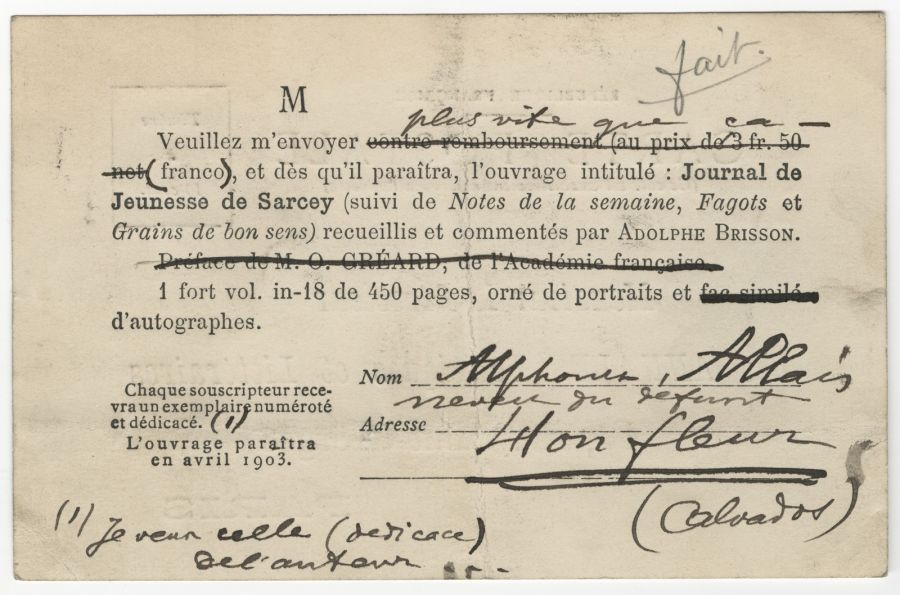 fait.
M
plus vite que ça —
Veuillez m'envoyer contre remboursement (au prix de 3 fr. 50
net (franco), et dès qu'il paraîtra, l'ouvrage intitulé : Journal de
Jeunesse de Sarcey (suivi de Notes de la semaine, Fagots et
Grains de bon sens) recueillis et commentés par ADOLPHE BRISSON.
Préface de M. O. GRÉARD, de l'Académie française.
1 fort vol. in-18 de 450 pages, orné de portraits et fac-similé
d'autographes.
Nom Alphonse Allais
neveu du défunt
Adresse Honfleur
(Calvados)
Chaque souscripteur rece-
vra un exemplaire numéroté
et dédicacé. (1)
L'ouvrage paraîtra
en avril 1903.
(1) Je veux celle (dédicace)
de l'auteur